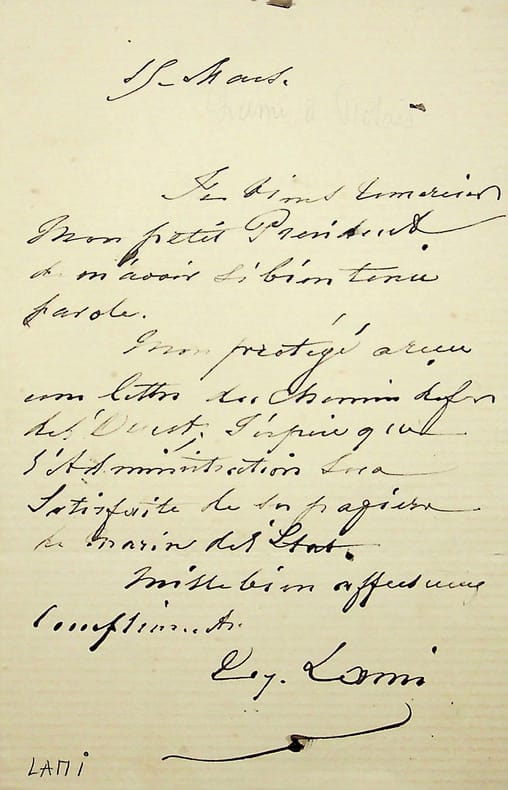 15 Mars.
Je viens remercier
Mon petit Président
de m'avoir si bien tenu
parole.
Mon protégé a reçu
une lettre du Chemin de fer
de l'Ouest, J'espère que
l'Administration sera
Satisfaite de ses papiers
de marin de l'Etat.
Mille bien affectueux
Compliments.
Eug. Lami
LAMI